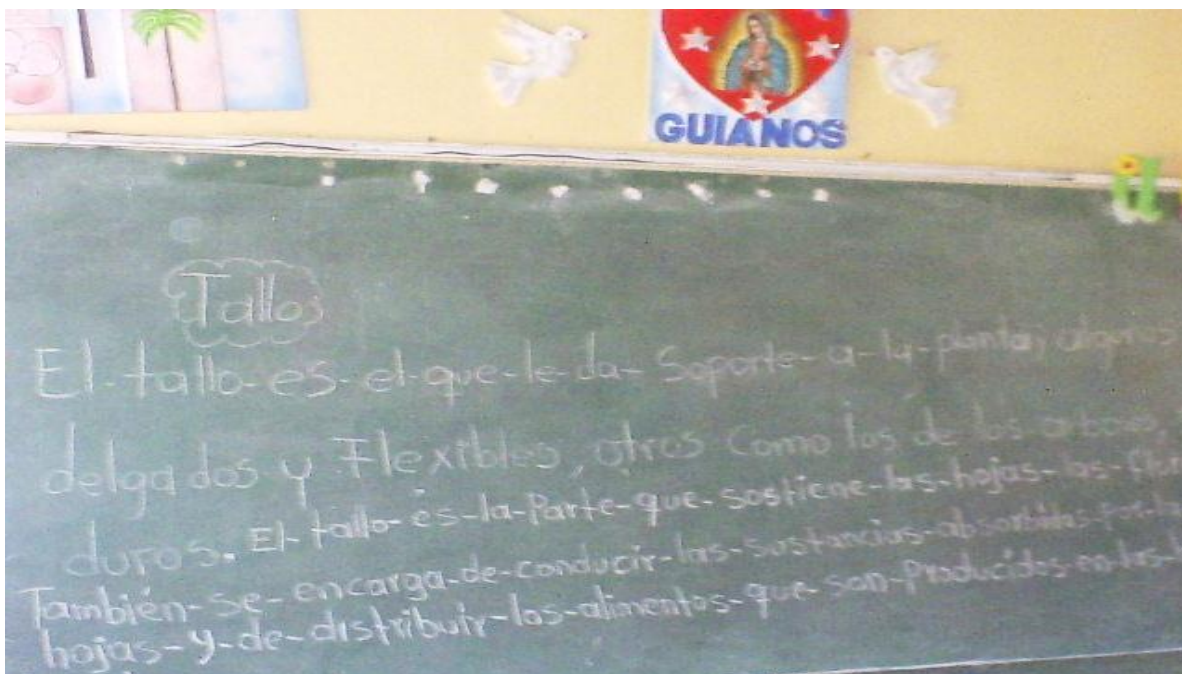 GUIANOS
Tallos
El-tallo-es-el-que-le-da-Soporte-a-la-planta, algunos
delgados y Flexibles, otros Como los de los arboles,
duros. El-tallo-es-la-Parte-que-sostiene-las-hojas-las-
También-se-encarga-de-conducir-las-sustancias-absorbidas-por-la
hojas-y-de-distribuir-los-alimentos-que-son-producidos-en-las-